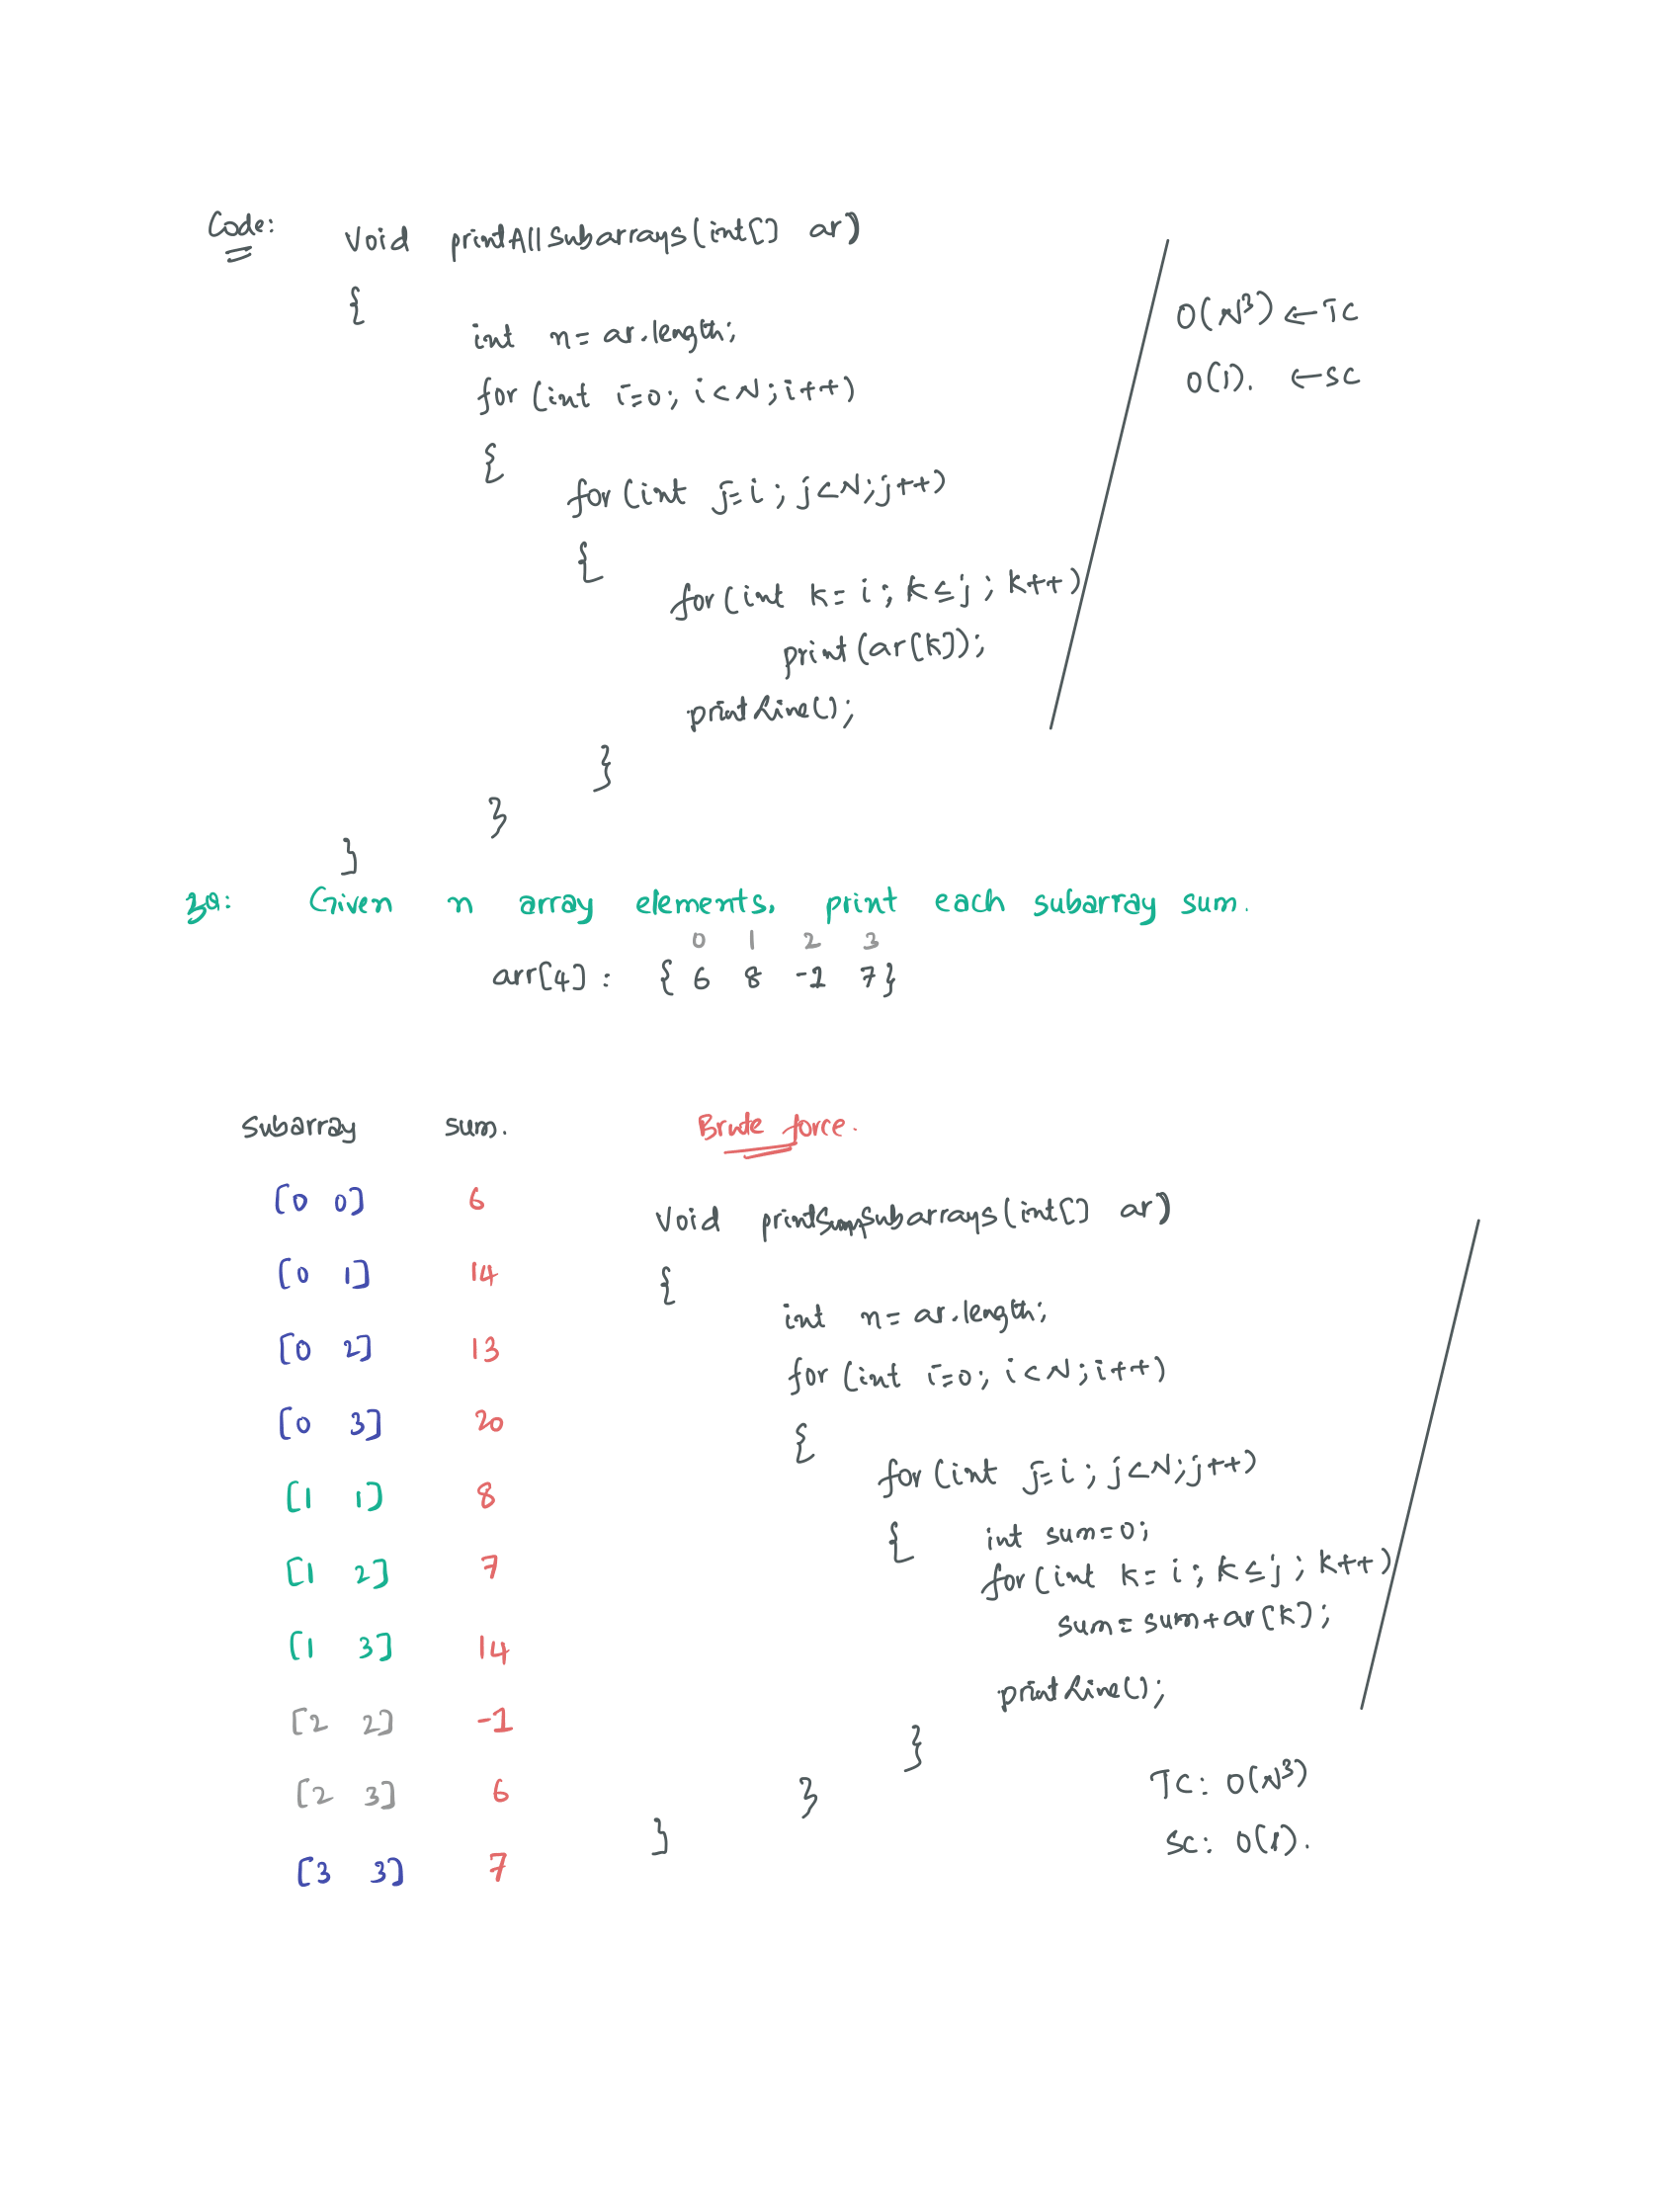 Code: Void printAllSubarrays(int[] ar)
{
int n= ar.length;
for (int i=0; i<N; i++)
{
for (int j=i; j<N; j++)
{
for (int k= i; k≤j; k++)
print(ar[k]);
printLine();
}
}
}
O(N³) ← TC
O(1). ← SC
3Q: Given n array elements, print each subarray sum.
0 1 2 3
arr[4] : { 6 8 -1 7 }
Subarray sum.
[0 0] 6
[0 1] 14
[0 2] 13
[0 3] 20
[1 1] 8
[1 2] 7
[1 3] 14
[2 2] -1
[2 3] 6
[3 3] 7
Brute force.
Void printSumSubarrays(int[] ar)
{
int n= ar.length;
for (int i=0; i<N; i++)
{
for (int j=i; j<N; j++)
{ int sum=0;
for (int k= i; k≤j; k++)
sum=sum+ar[k];
printLine();
}
}
}
TC: O(N³)
SC: O(1).